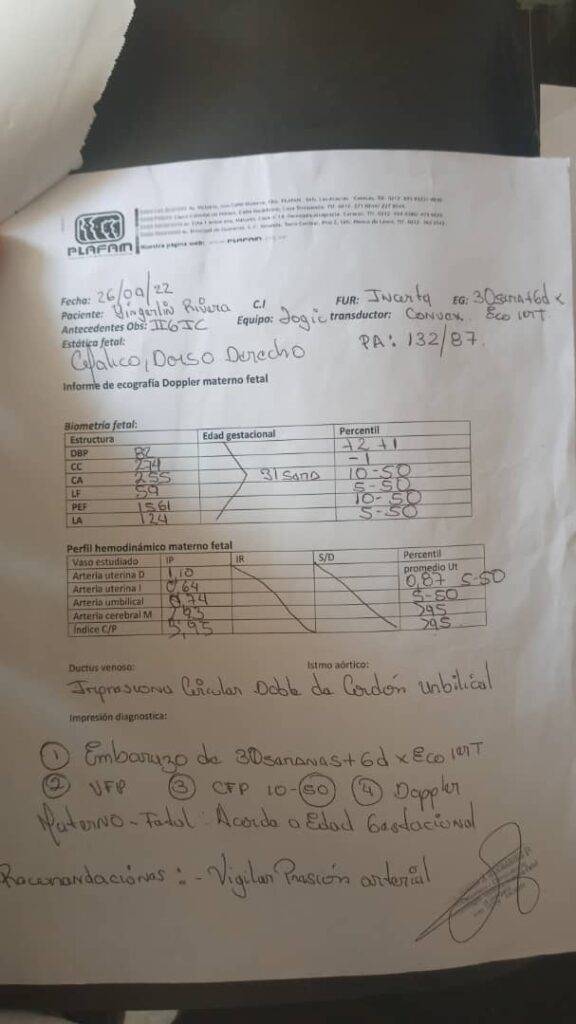 PLAFAM
Nuestra página web: www. PLAFAM
Fecha: 26/09/22
Paciente: Yingerlin Rivera C.I FUR: Incerta EG: 30sem+6d x
Antecedentes Obs: IIG IC Equipo: Logic transductor: Convex. Eco 1erT
Estática fetal: PA: 132/87.
Cefalico, Dorso Derecho
Informe de ecografía Doppler materno fetal
Biometría fetal:
Estructura Edad gestacional Percentil
DBP 82 +2 +1
CC 274 -1
CA 255 31sem 10-50
LF 59 5-50
PEF 1561 10-50
LA 124 5-50
Perfil hemodinámico materno fetal
Vaso estudiado IP IR S/D Percentil
promedio Ut
Arteria uterina D 1,10 0,87 5-50
Arteria uterina I 0,64
Arteria umbilical 0,74 5-50
Arteria cerebral M 2,93 >95
Índice C/P 3,95 >95
Ductus venoso: Istmo aórtico:
Impresiona Circular Doble de Cordón Umbilical
Impresión diagnostica:
① Embarazo de 30semanas+6d x Eco 1erT
② UFP ③ CFP 10-50 ④ Doppler
Materno-Fetal: Acorde a Edad Gestacional
Recomendaciones: - Vigilar Presión arterial